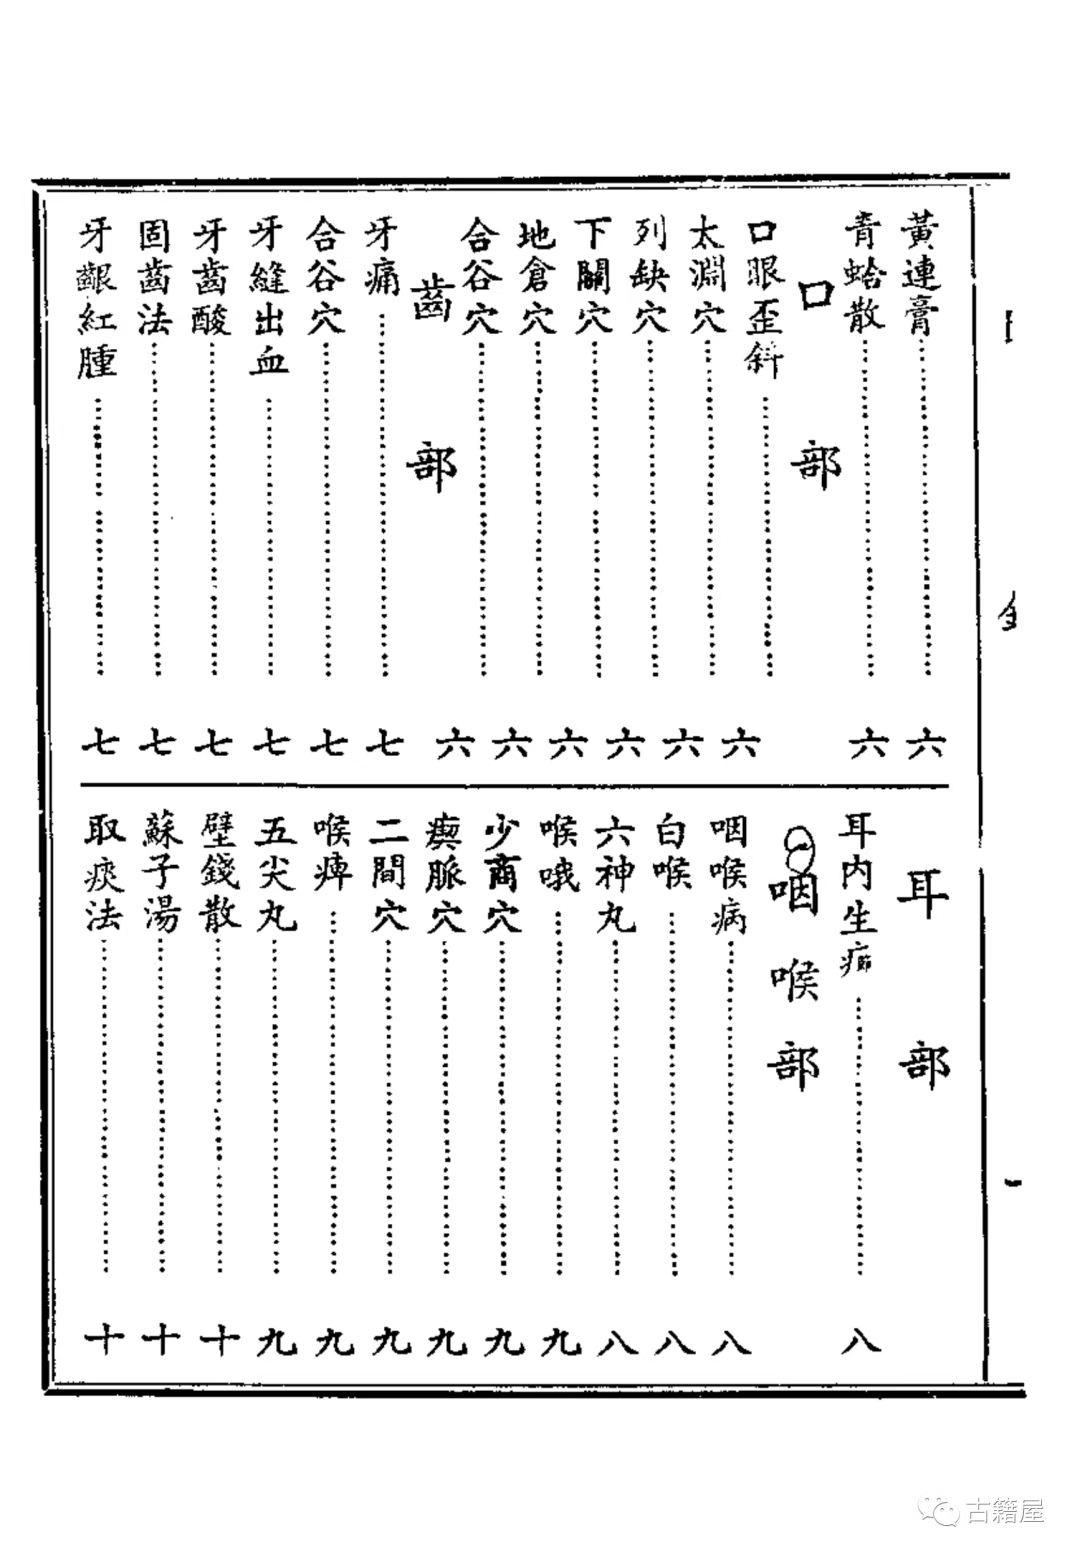 黃連膏……六
青蛤散……六
口部
口眼歪斜……六
太淵穴……六
列缺穴……六
下關穴……六
地倉穴……六
合谷穴……六
齒部
牙痛……七
合谷穴……七
牙縫出血……七
牙齒酸……七
固齒法……七
牙齦紅腫……七
耳部
耳內生癤……八
咽喉部
咽喉病……八
白喉……八
六神丸……八
喉哦……九
少商穴……九
瘈脈穴……九
二間穴……九
喉痺……九
五尖丸……九
壁錢散……十
蘇子湯……十
取痰法……十
一
古籍屋